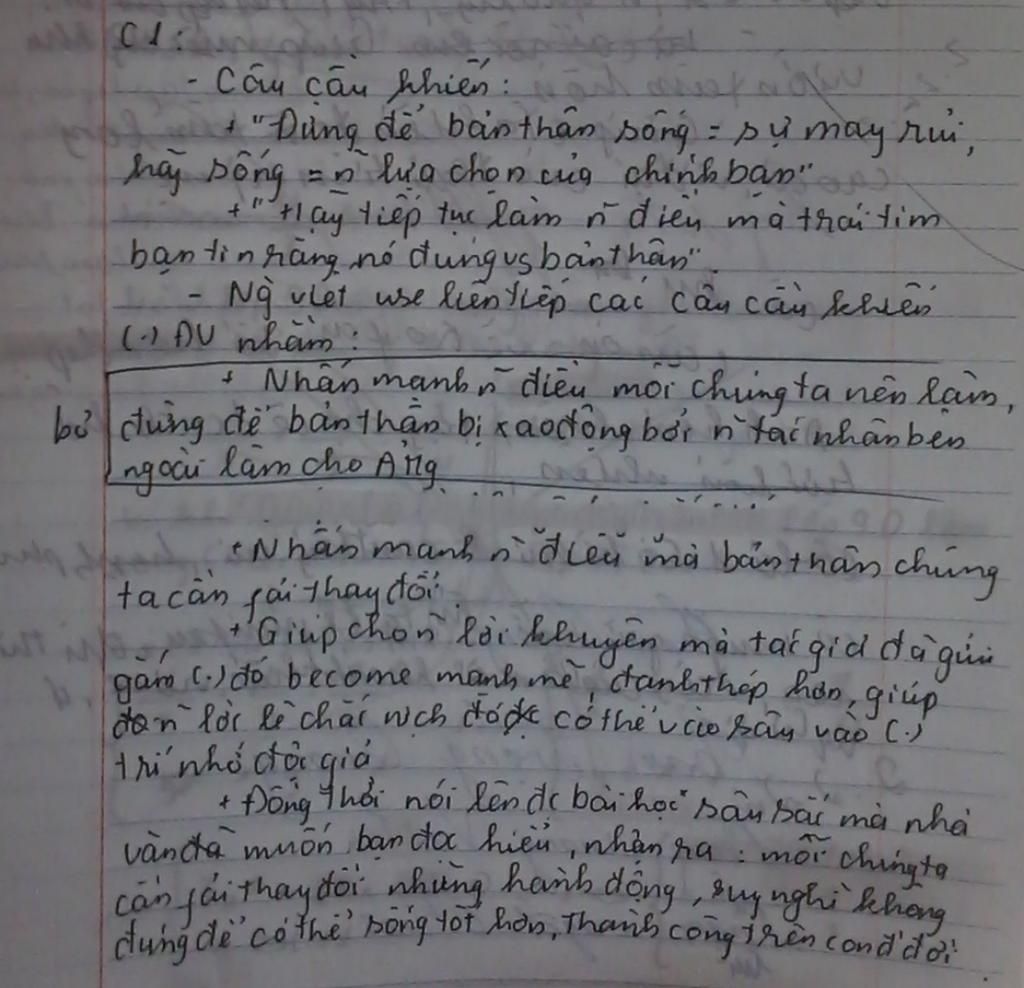 C1:
- Câu cầu khiến:
+ "Đừng để bản thân sống = sự may rủi,
hãy sống = n~ lựa chọn của chính bạn"
+ "Hãy tiếp tục làm n~ điều mà trái tim
bạn tin rằng nó đúng vs bản thân".
- Ng` viết use liên tiếp các câu cầu khiến
(.) ĐV nhằm:
+ Nhấn mạnh n~ điều mỗi chúng ta nên làm,
bỏ đừng để bản thân bị xao động bởi n~ tác nhân bên
ngoài làm cho
+ Nhấn mạnh n~ điều mà bản thân chúng
ta cần fải thay đổi.
+ Giúp cho n~ lời khuyên mà tác giả đã gửi
gắm (.) đó become mạnh mẽ, đanh thép hơn, giúp
n~ lời lẽ chắc nịch đó đc có thể vào sâu vào (.)
trí nhớ độc giả
+ Đồng thời nói lên đc bài học sâu sắc mà nhà
văn đã muốn bạn đọc hiểu, nhận ra: mỗi chúng ta
cần fải thay đổi những hành động, suy nghĩ không
đúng để có thể sống tốt hơn, thành công trên con đ` đời